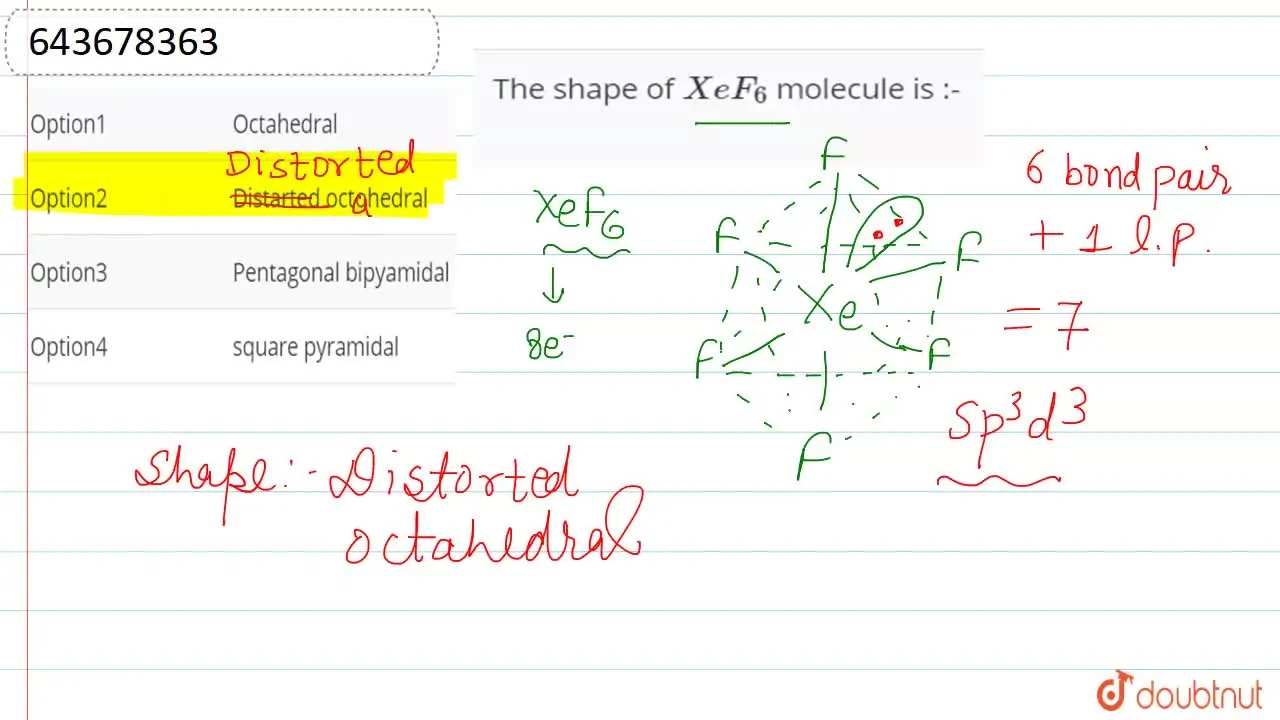 643678363
The shape of XeF6 molecule is :-
Option1 Octahedral
Distorted
Option2 Distarted octohedral
a
Option3 Pentagonal bipyamidal
Option4 square pyramidal
XeF6
8e-
F
F F
Xe
F F
F
6 bond pair
+ 1 l.p.
= 7
sp³d³
Shape:- Distorted
octahedral
doubtnut